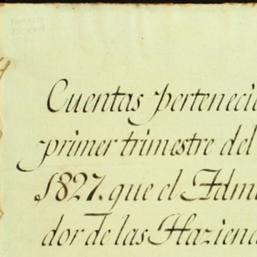 Cuentas perteneci
primer trimestre del
1827. que el Adm
dor de las Hazien